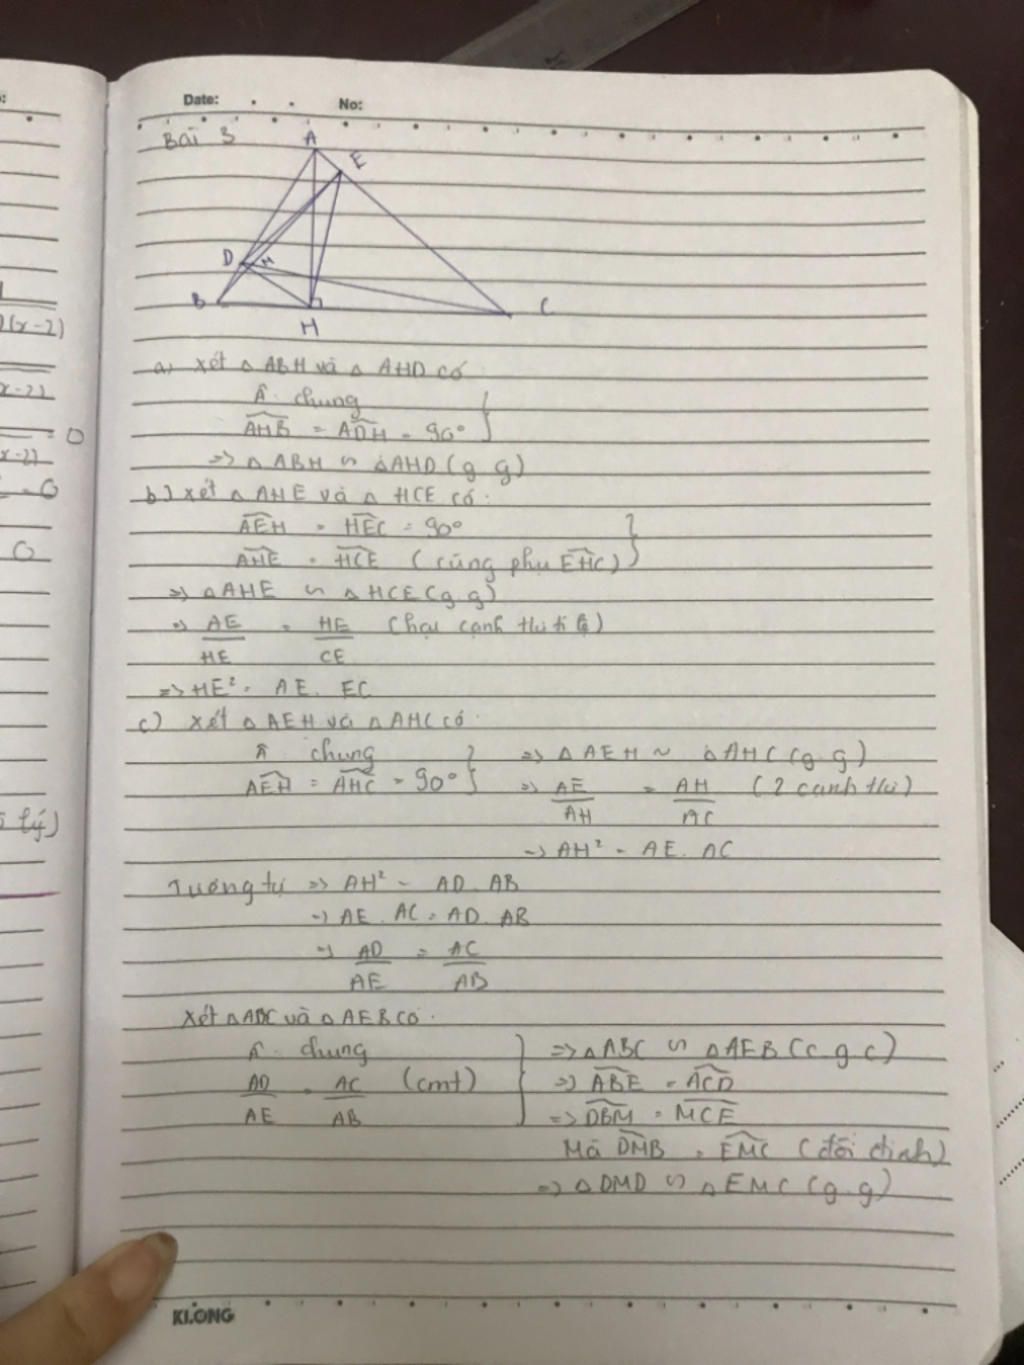 Date: No:
Bài 3
A
E
D
M
B
H
C
a) Xét △ ABH và △ AHD có
Â chung
AHB = ADH = 90°
=> △ ABH ∽ △AHD (g.g)
b) Xét △ AHE và △ HCE có:
AEH = HEC = 90°
AHE = HCE (cùng phụ EHC)
=> △AHE ∽ △HCE (g.g)
=> AE/HE = HE/CE (hai cạnh thì tỉ lệ)
=> HE² = AE. EC
c) Xét △ AEH và △ AHC có:
Â chung => △ AEH ~ △AHC (g.g)
AEH = AHC = 90° => AE/AH = AH/AC (2 cạnh thì)
=> AH² = AE. AC
Tương tự => AH² = AD. AB
=> AE. AC = AD. AB
=> AD/AE = AC/AB
Xét △ADC và △ AEB có:
Â chung => △ABC ∽ △AEB (c.g.c)
AD/AE = AC/AB (cmt) => ABE = ACD
=> DBM = MCE
Mà DMB = EMC (đối đỉnh)
=> △ DMD ∽ △ EMC (g.g)
KLONG
0(x-2)
x-2)
= 0
x-2)
= 0
0
lý)